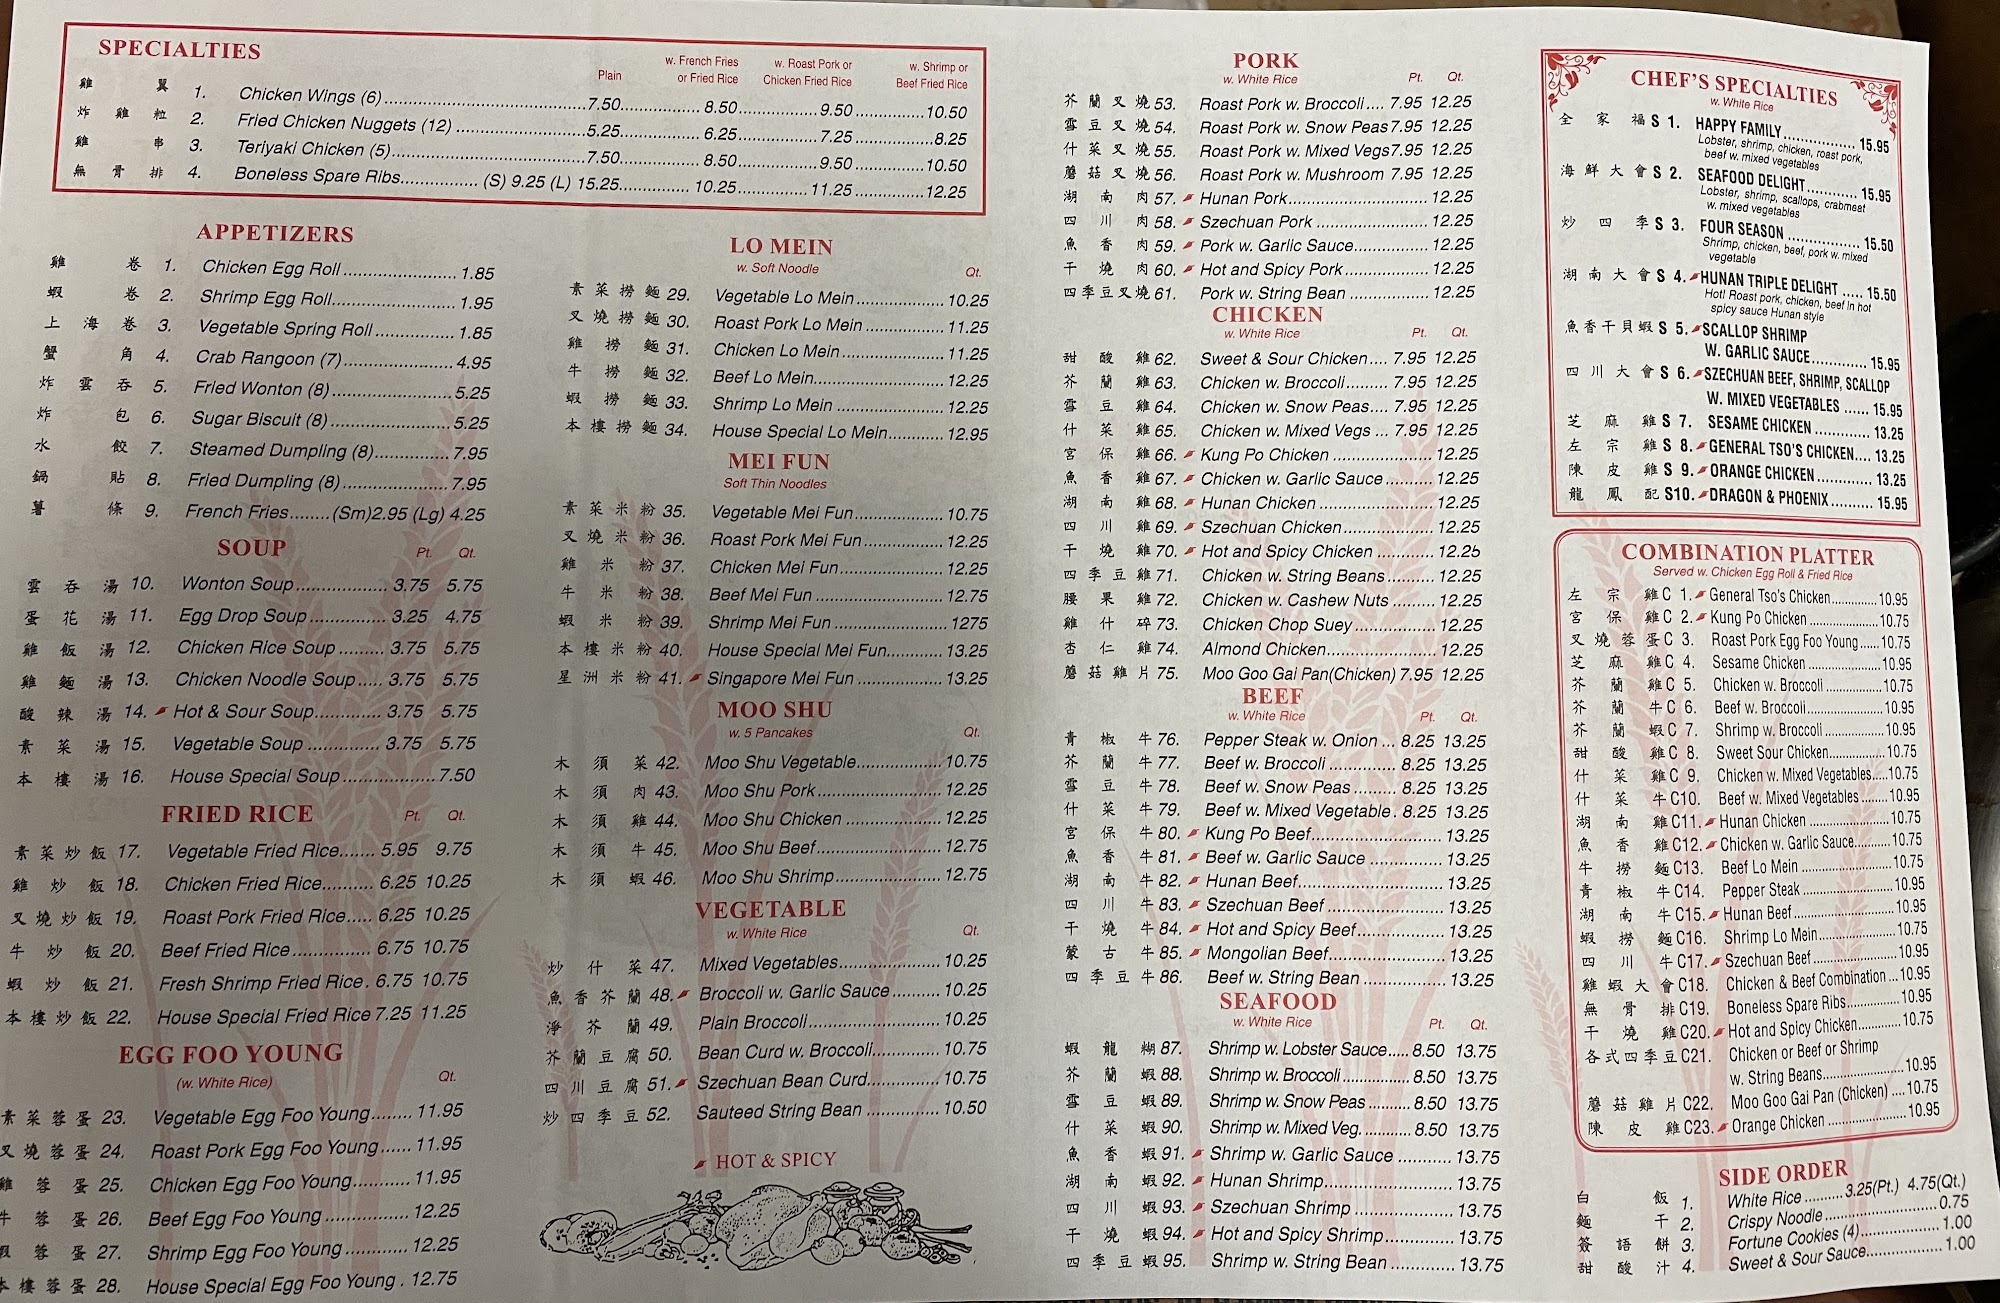 SPECIALTIES
Plain
w. French Fries or Fried Rice
w. Roast Pork or Chicken Fried Rice
w. Shrimp or Beef Fried Rice
雞翼 1. Chicken Wings (6) 7.50 8.50 9.50 10.50
炸雞粒 2. Fried Chicken Nuggets (12) 5.25 6.25 7.25 8.25
雞串 3. Teriyaki Chicken (5) 7.50 8.50 9.50 10.50
無骨排 4. Boneless Spare Ribs (S) 9.25 (L) 15.25 10.25 11.25 12.25
APPETIZERS
雞卷 1. Chicken Egg Roll 1.85
蝦卷 2. Shrimp Egg Roll 1.95
上海卷 3. Vegetable Spring Roll 1.85
蟹角 4. Crab Rangoon (7) 4.95
炸雲吞 5. Fried Wonton (8) 5.25
炸包 6. Sugar Biscuit (8) 5.25
水餃 7. Steamed Dumpling (8) 7.95
鍋貼 8. Fried Dumpling (8) 7.95
薯條 9. French Fries (Sm)2.95 (Lg) 4.25
SOUP Pt. Qt.
雲吞湯 10. Wonton Soup 3.75 5.75
蛋花湯 11. Egg Drop Soup 3.25 4.75
雞飯湯 12. Chicken RIce Soup 3.75 5.75
雞麵湯 13. Chicken Noodle Soup 3.75 5.75
酸辣湯 14. Hot & Sour Soup 3.75 5.75
素菜湯 15. Vegetable Soup 3.75 5.75
本樓湯 16. House Special Soup 7.50
FRIED RICE Pt. Qt.
素菜炒飯 17. Vegetable Fried Rice 5.95 9.75
雞炒飯 18. Chicken Fried Rice 6.25 10.25
叉燒炒飯 19. Roast Pork Fried Rice 6.25 10.25
牛炒飯 20. Beef Fried Rice 6.75 10.75
蝦炒飯 21. Fresh Shrimp Fried Rice 6.75 10.75
本樓炒飯 22. House Special Fried Rice 7.25 11.25
EGG FOO YOUNG
(w. White Rice) Qt.
素菜蓉蛋 23. Vegetable Egg Foo Young 11.95
叉燒蓉蛋 24. Roast Pork Egg Foo Young 11.95
雞蓉蛋 25. Chicken Egg Foo Young 11.95
牛蓉蛋 26. Beef Egg Foo Young 12.25
蝦蓉蛋 27. Shrimp Egg Foo Young 12.25
本樓蓉蛋 28. House Special Egg Foo Young 12.75
LO MEIN
w. Soft Noodle Qt.
素菜撈麵 29. Vegetable Lo Mein 10.25
叉燒撈麵 30. Roast Pork Lo Mein 11.25
雞撈麵 31. Chicken Lo Mein 11.25
牛撈麵 32. Beef Lo Mein 12.25
蝦撈麵 33. Shrimp Lo Mein 12.25
本樓撈麵 34. House Special Lo Mein 12.95
MEI FUN
Soft Thin Noodles
素菜米粉 35. Vegetable Mei Fun 10.75
叉燒米粉 36. Roast Pork Mei Fun 12.25
雞米粉 37. Chicken Mei Fun 12.25
牛米粉 38. Beef Mei Fun 12.75
蝦米粉 39. Shrimp Mei Fun 1275
本樓米粉 40. House Special Mei Fun 13.25
星洲米粉 41. Singapore Mei Fun 13.25
MOO SHU
w. 5 Pancakes Qt.
木須菜 42. Moo Shu Vegetable 10.75
木須肉 43. Moo Shu Pork 12.25
木須雞 44. Moo Shu Chicken 12.25
木須牛 45. Moo Shu Beef 12.75
木須蝦 46. Moo Shu Shrimp 12.75
VEGETABLE
w. White Rice Qt.
炒什菜 47. Mixed Vegetables 10.25
魚香芥蘭 48. Broccoli w. Garlic Sauce 10.25
淨芥蘭 49. Plain Broccoli 10.25
芥蘭豆腐 50. Bean Curd w. Broccoli 10.75
四川豆腐 51. Szechuan Bean Curd 10.75
炒四季豆 52. Sauteed String Bean 10.50
HOT & SPICY
PORK
w. White Rice Pt. Qt.
芥蘭叉燒 53. Roast Pork w. Broccoli 7.95 12.25
雪豆叉燒 54. Roast Pork w. Snow Peas 7.95 12.25
什菜叉燒 55. Roast Pork w. Mixed Vegs 7.95 12.25
蘑菇叉燒 56. Roast Pork w. Mushroom 7.95 12.25
湖南肉 57. Hunan Pork 12.25
四川肉 58. Szechuan Pork 12.25
魚香肉 59. Pork w. Garlic Sauce 12.25
干燒肉 60. Hot and Spicy Pork 12.25
四季豆叉燒 61. Pork w. String Bean 12.25
CHICKEN
w. White Rice Pt. Qt.
甜酸雞 62. Sweet & Sour Chicken 7.95 12.25
芥蘭雞 63. Chicken w. Broccoli 7.95 12.25
雪豆雞 64. Chicken w. Snow Peas 7.95 12.25
什菜雞 65. Chicken w. Mixed Vegs 7.95 12.25
宮保雞 66. Kung Po Chicken 12.25
魚香雞 67. Chicken w. Garlic Sauce 12.25
湖南雞 68. Hunan Chicken 12.25
四川雞 69. Szechuan Chicken 12.25
干燒雞 70. Hot and Spicy Chicken 12.25
四季豆雞 71. Chicken w. String Beans 12.25
腰果雞 72. Chicken w. Cashew Nuts 12.25
雞什碎 73. Chicken Chop Suey 12.25
杏仁雞 74. Almond Chicken 12.25
蘑菇雞片 75. Moo Goo Gai Pan(Chicken) 7.95 12.25
BEEF
w. White Rice Pt. Qt.
青椒牛 76. Pepper Steak w. Onion 8.25 13.25
芥蘭牛 77. Beef w. Broccoli 8.25 13.25
雪豆牛 78. Beef w. Snow Peas 8.25 13.25
什菜牛 79. Beef w. Mixed Vegetable 8.25 13.25
宮保牛 80. Kung Po Beef 13.25
魚香牛 81. Beef w. Garlic Sauce 13.25
湖南牛 82. Hunan Beef 13.25
四川牛 83. Szechuan Beef 13.25
干燒牛 84. Hot and Spicy Beef 13.25
蒙古牛 85. Mongolian Beef 13.25
四季豆牛 86. Beef w. String Bean 13.25
SEAFOOD
w. White Rice Pt. Qt.
蝦龍糊 87. Shrimp w. Lobster Sauce 8.50 13.75
芥蘭蝦 88. Shrimp w. Broccoli 8.50 13.75
雪豆蝦 89. Shrimp w. Snow Peas 8.50 13.75
什菜蝦 90. Shrimp w. Mixed Veg. 8.50 13.75
魚香蝦 91. Shrimp w. Garlic Sauce 13.75
湖南蝦 92. Hunan Shrimp 13.75
四川蝦 93. Szechuan Shrimp 13.75
干燒蝦 94. Hot and Spicy Shrimp 13.75
四季豆蝦 95. Shrimp w. String Bean 13.75
CHEF'S SPECIALTIES
w. White Rice
全家福 S 1. HAPPY FAMILY 15.95
Lobster, shrimp, chicken, roast pork,
beef w. mixed vegetables
海鮮大會 S 2. SEAFOOD DELIGHT 15.95
Lobster, shrimp, scallops, crabmeat
w. mixed vegetables
炒四季 S 3. FOUR SEASON 15.50
Shrimp, chicken, beef, pork w. mixed
vegetable
湖南大會 S 4. HUNAN TRIPLE DELIGHT 15.50
Hot! Roast pork, chicken, beef in hot
spicy sauce Hunan style
魚香干貝蝦 S 5. SCALLOP SHRIMP
W. GARLIC SAUCE 15.95
四川大會 S 6. SZECHUAN BEEF, SHRIMP, SCALLOP
W. MIXED VEGETABLES 15.95
芝麻雞 S 7. SESAME CHICKEN 13.25
左宗雞 S 8. GENERAL TSO'S CHICKEN 13.25
陳皮雞 S 9. ORANGE CHICKEN 13.25
龍鳳配 S10. DRAGON & PHOENIX 15.95
COMBINATION PLATTER
Served w. Chicken Egg Roll & Fried Rice
左宗雞 C 1. General Tso's Chicken 10.95
宮保雞 C 2. Kung Po Chicken 10.75
叉燒蓉蛋 C 3. Roast Pork Egg Foo Young 10.75
芝麻雞 C 4. Sesame Chicken 10.95
芥蘭雞 C 5. Chicken w. Broccoli 10.75
芥蘭牛 C 6. Beef w. Broccoli 10.95
芥蘭蝦 C 7. Shrimp w. Broccoli 10.95
甜酸雞 C 8. Sweet Sour Chicken 10.75
什菜雞 C 9. Chicken w. Mixed Vegetables 10.75
什菜牛 C10. Beef w. Mixed Vegetables 10.95
湖南雞 C11. Hunan Chicken 10.75
魚香雞 C12. Chicken w. Garlic Sauce 10.75
牛撈麵 C13. Beef Lo Mein 10.75
青椒牛 C14. Pepper Steak 10.95
湖南牛 C15. Hunan Beef 10.95
蝦撈麵 C16. Shrimp Lo Mein 10.75
四川牛 C17. Szechuan Beef 10.95
雞蝦大會 C18. Chicken & Beef Combination 10.95
無骨排 C19. Boneless Spare Ribs 10.95
干燒雞 C20. Hot and Spicy Chicken 10.75
各式四季豆 C21. Chicken or Beef or Shrimp
w. String Beans 10.95
蘑菇雞片 C22. Moo Goo Gai Pan (Chicken) 10.75
陳皮雞 C23. Orange Chicken 10.95
SIDE ORDER
白飯 1. White Rice 3.25(Pt.) 4.75(Qt.)
麵干 2. Crispy Noodle 0.75
簽語餅 3. Fortune Cookies (4) 1.00
甜酸汁 4. Sweet & Sour Sauce 1.00